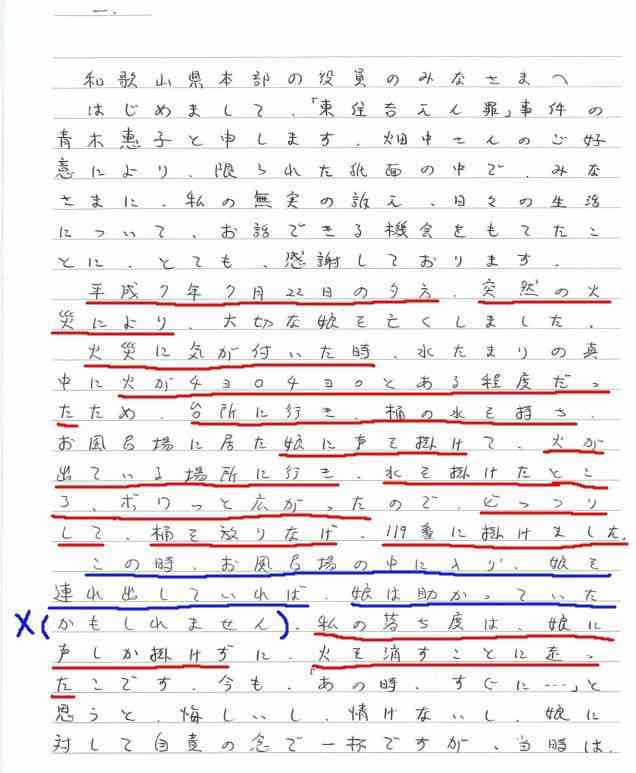 一.
和歌山県本部の役員のみなさまへ
はじめまして、「東住吉えん罪」事件の
青木惠子と申します。畑中さんのご好
意により、限られた紙面の中で、みな
さまに、私の無実の訴え、日々の生活
について、お話できる機会をもてたこ
とに、とても、感謝しております。
平成7年7月22日の夕方、突然の火
災により、大切な娘を亡くしました。
火災に気が付いた時、水たまりの真
中に火がチョロチョロとある程度だっ
たため、台所に行き、桶の水を持ち、
お風呂場に居た娘に声を掛けて、火が
出ている場所に行き、水を掛けたとこ
ろ、ボワっと広がったので、びっつり
して、桶を放りなげ、119番に掛けました。
この時、お風呂場の中に入り、娘を
連れ出していれば、娘は助かっていた
X(かもしれません)。私の落ち度は、娘に
声しか掛けずに、火を消すことに走っ
たこです。今も、「あの時、すぐに……」と
思うと、悔しいし、情けないし、娘に
対して自責の念で一杯ですが、当時は、